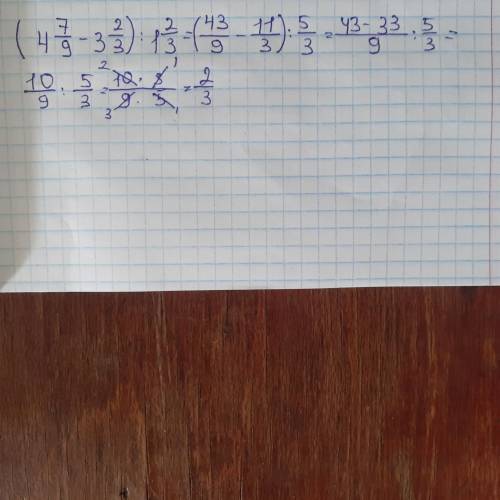 (4 7/9 - 3 2/3) : 1 2/3 = (43/9 - 11/3) : 5/3 = (43 - 33)/9 : 5/3 =
10/9 : 5/3 = (10 · 3)/(9 · 5) = 2/3